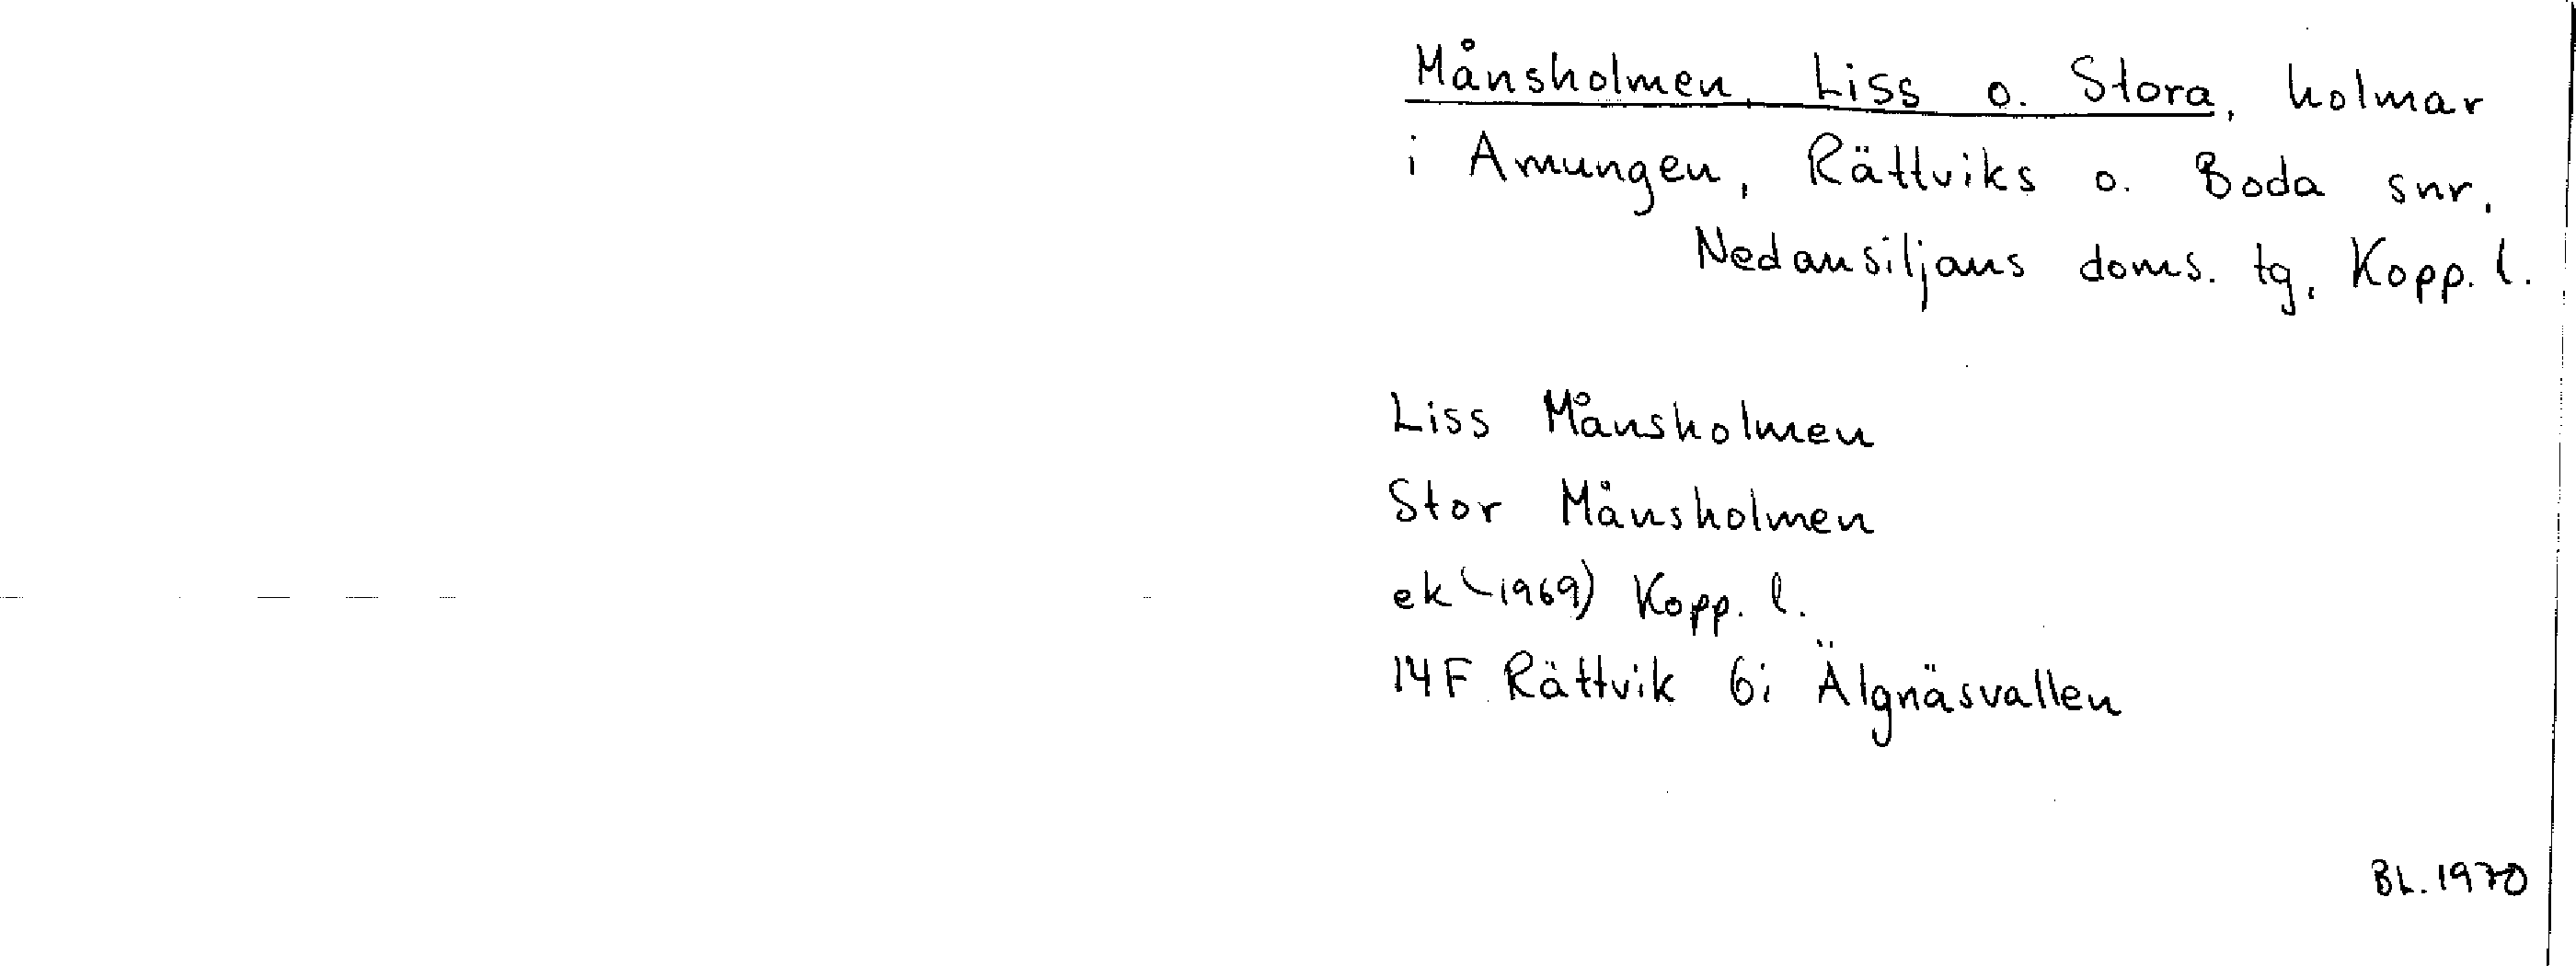 Månsholmen, Liss o. Stora, holmar
i Amungen, Rättviks o. Boda snr,
Nedansiljans doms. tg, Kopp. l.
Liss Månsholmen
Stor Månsholmen
ek (-1969) Kopp. l.
14F Rättvik 6i Älgnäsvallen
BL. 1970